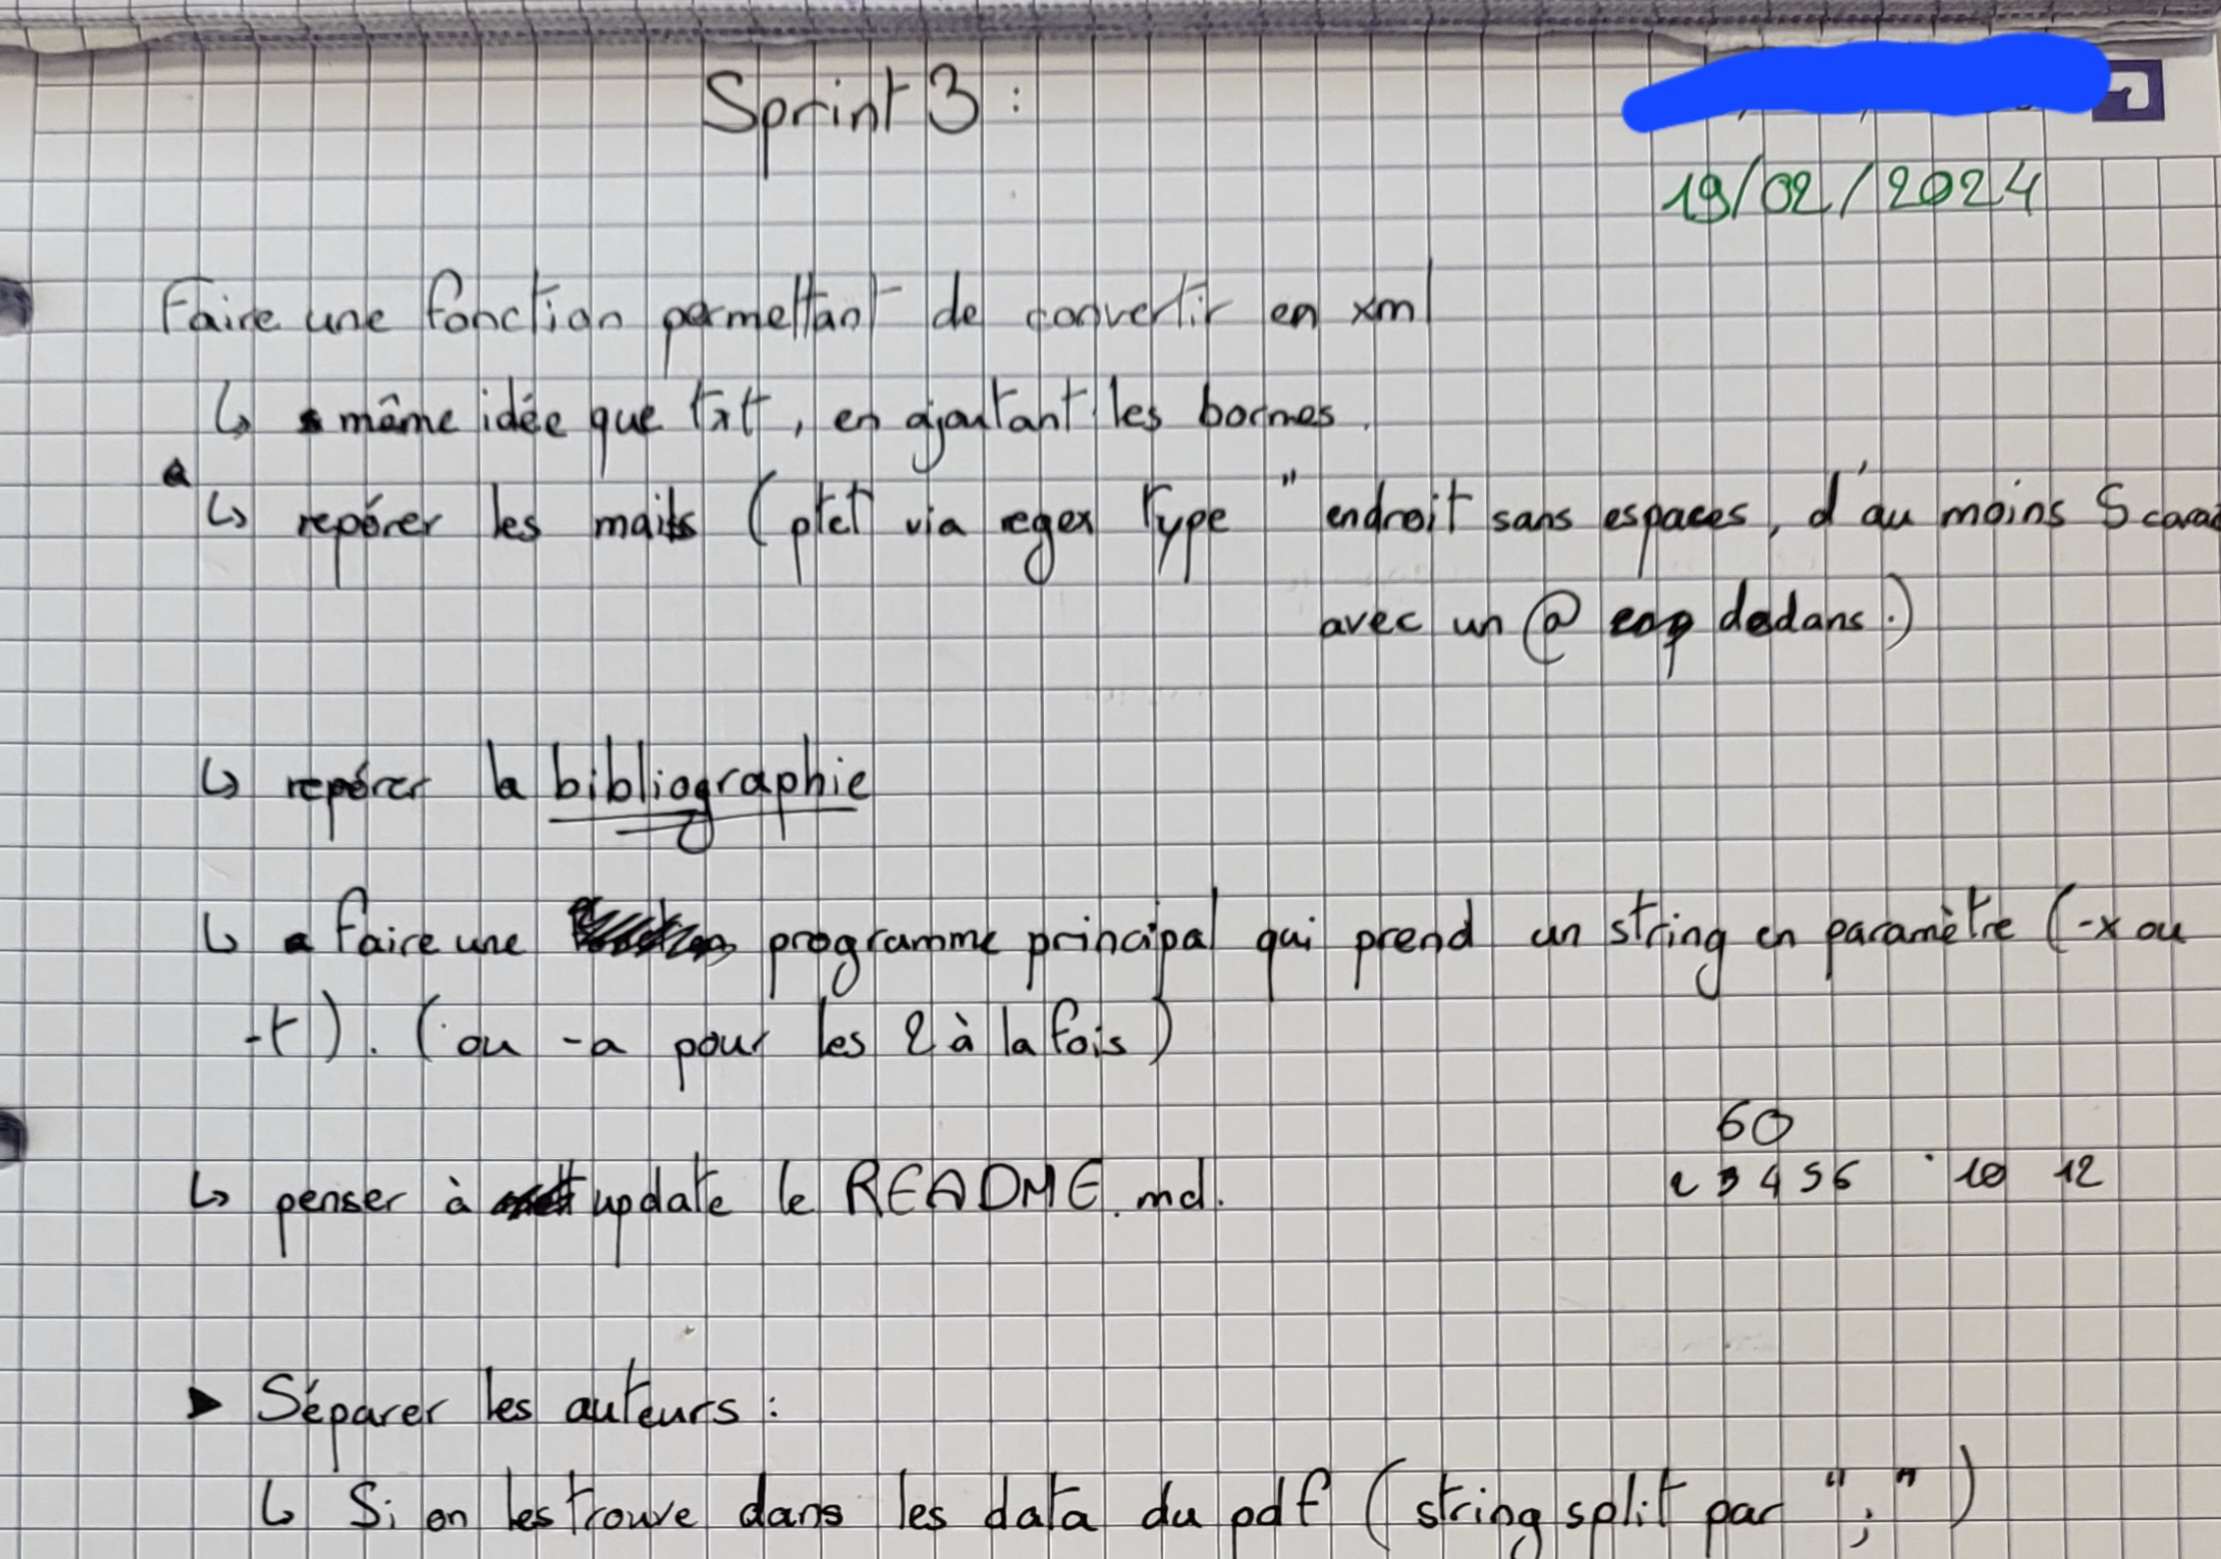 Sprint 3 :
19/02/2024
Faire une fonction permettant de convertir en xml
↳ même idée que txt, en ajoutant les bornes.
↳ repérer les mails (ptet via regex type "endroit sans espaces, d'au moins 5
avec un @ dedans.)
↳ repérer la bibliographie
↳ faire une programme principal qui prend un string en paramètre (-x ou
-t). (ou -a pour les 2 à la fois)
60
2 3 4 5 6 10 12
↳ penser à update le README.md.
▶ Séparer les auteurs :
↳ Si on les trouve dans les data du pdf (string split par ";")